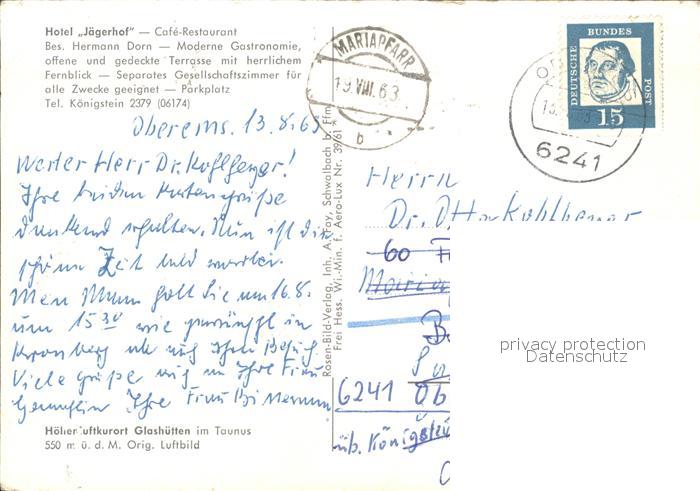 Hotel „Jägerhof" — Café-Restaurant
Bes. Hermann Dorn — Moderne Gastronomie,
offene und gedeckte Terrasse mit herrlichem
Fernblick — Separates Gesellschaftszimmer für
alle Zwecke geeignet — Parkplatz
Tel. Königstein 2379 (06174)
MARIAPFARR
19. VIII. 63
b
DEUTSCHE BUNDES POST
15
6241
Oberems. 13.8.63
Werter Herr Dr. Kohlheyer!
Ihre beiden Kartengrüße
dankend erhalten. Nun ist die
schöne Zeit bald vorbei.
Mein Mann holt Sie am 16.8.
um 15 30 wie gewünscht in
Kronberg ab
Viele Grüße Ihre Frau
Ihre Frau
Rosen-Bild-Verlag, Inh. A. Foy, Schwalbach b. Ffm.
Frei Hess. Wi.-Min. f. Aero-Lux Nr. 39/61
Herrn
Dr. Otto Kohlheyer
60
6241 Ob
üb. Königstei
privacy protection
Datenschutz
Höhenluftkurort Glashütten im Taunus
550 m ü. d. M. Orig. Luftbild